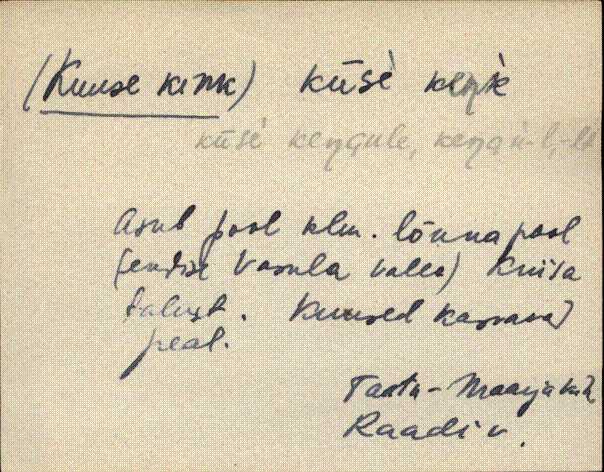 (Kuuse kink) kūsè keŋ̀k
kūsè keŋgule, keŋgù-l, -lt
Asub pool klm. lõuna pool
(endise Vasula valla) Kriisa
talust. Kuused kasvavad
peal.
Tartu-Maarja kih.
Raadi v.